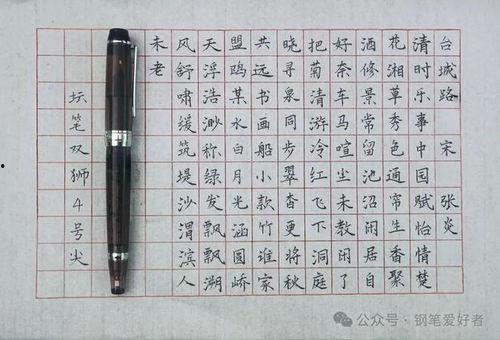 台城路 宋 张炎
清时乐事中园赋怡情楚
花湘草秀色通帘生香聚
酒修景常留池沼闲居自
好奈车马喧尘未教闲了
把菊清游冷红飞下洞庭
晓寻泉同步翠杳更将秋
共远书画船小款竹谁家
盟鸥某水白月光涵圆峤
天浮浩渺称绿发飘飘溯
风舒啸缓筑堤沙渭滨人
未老
坛笔双狮4号尖
公众号·钢笔爱好者